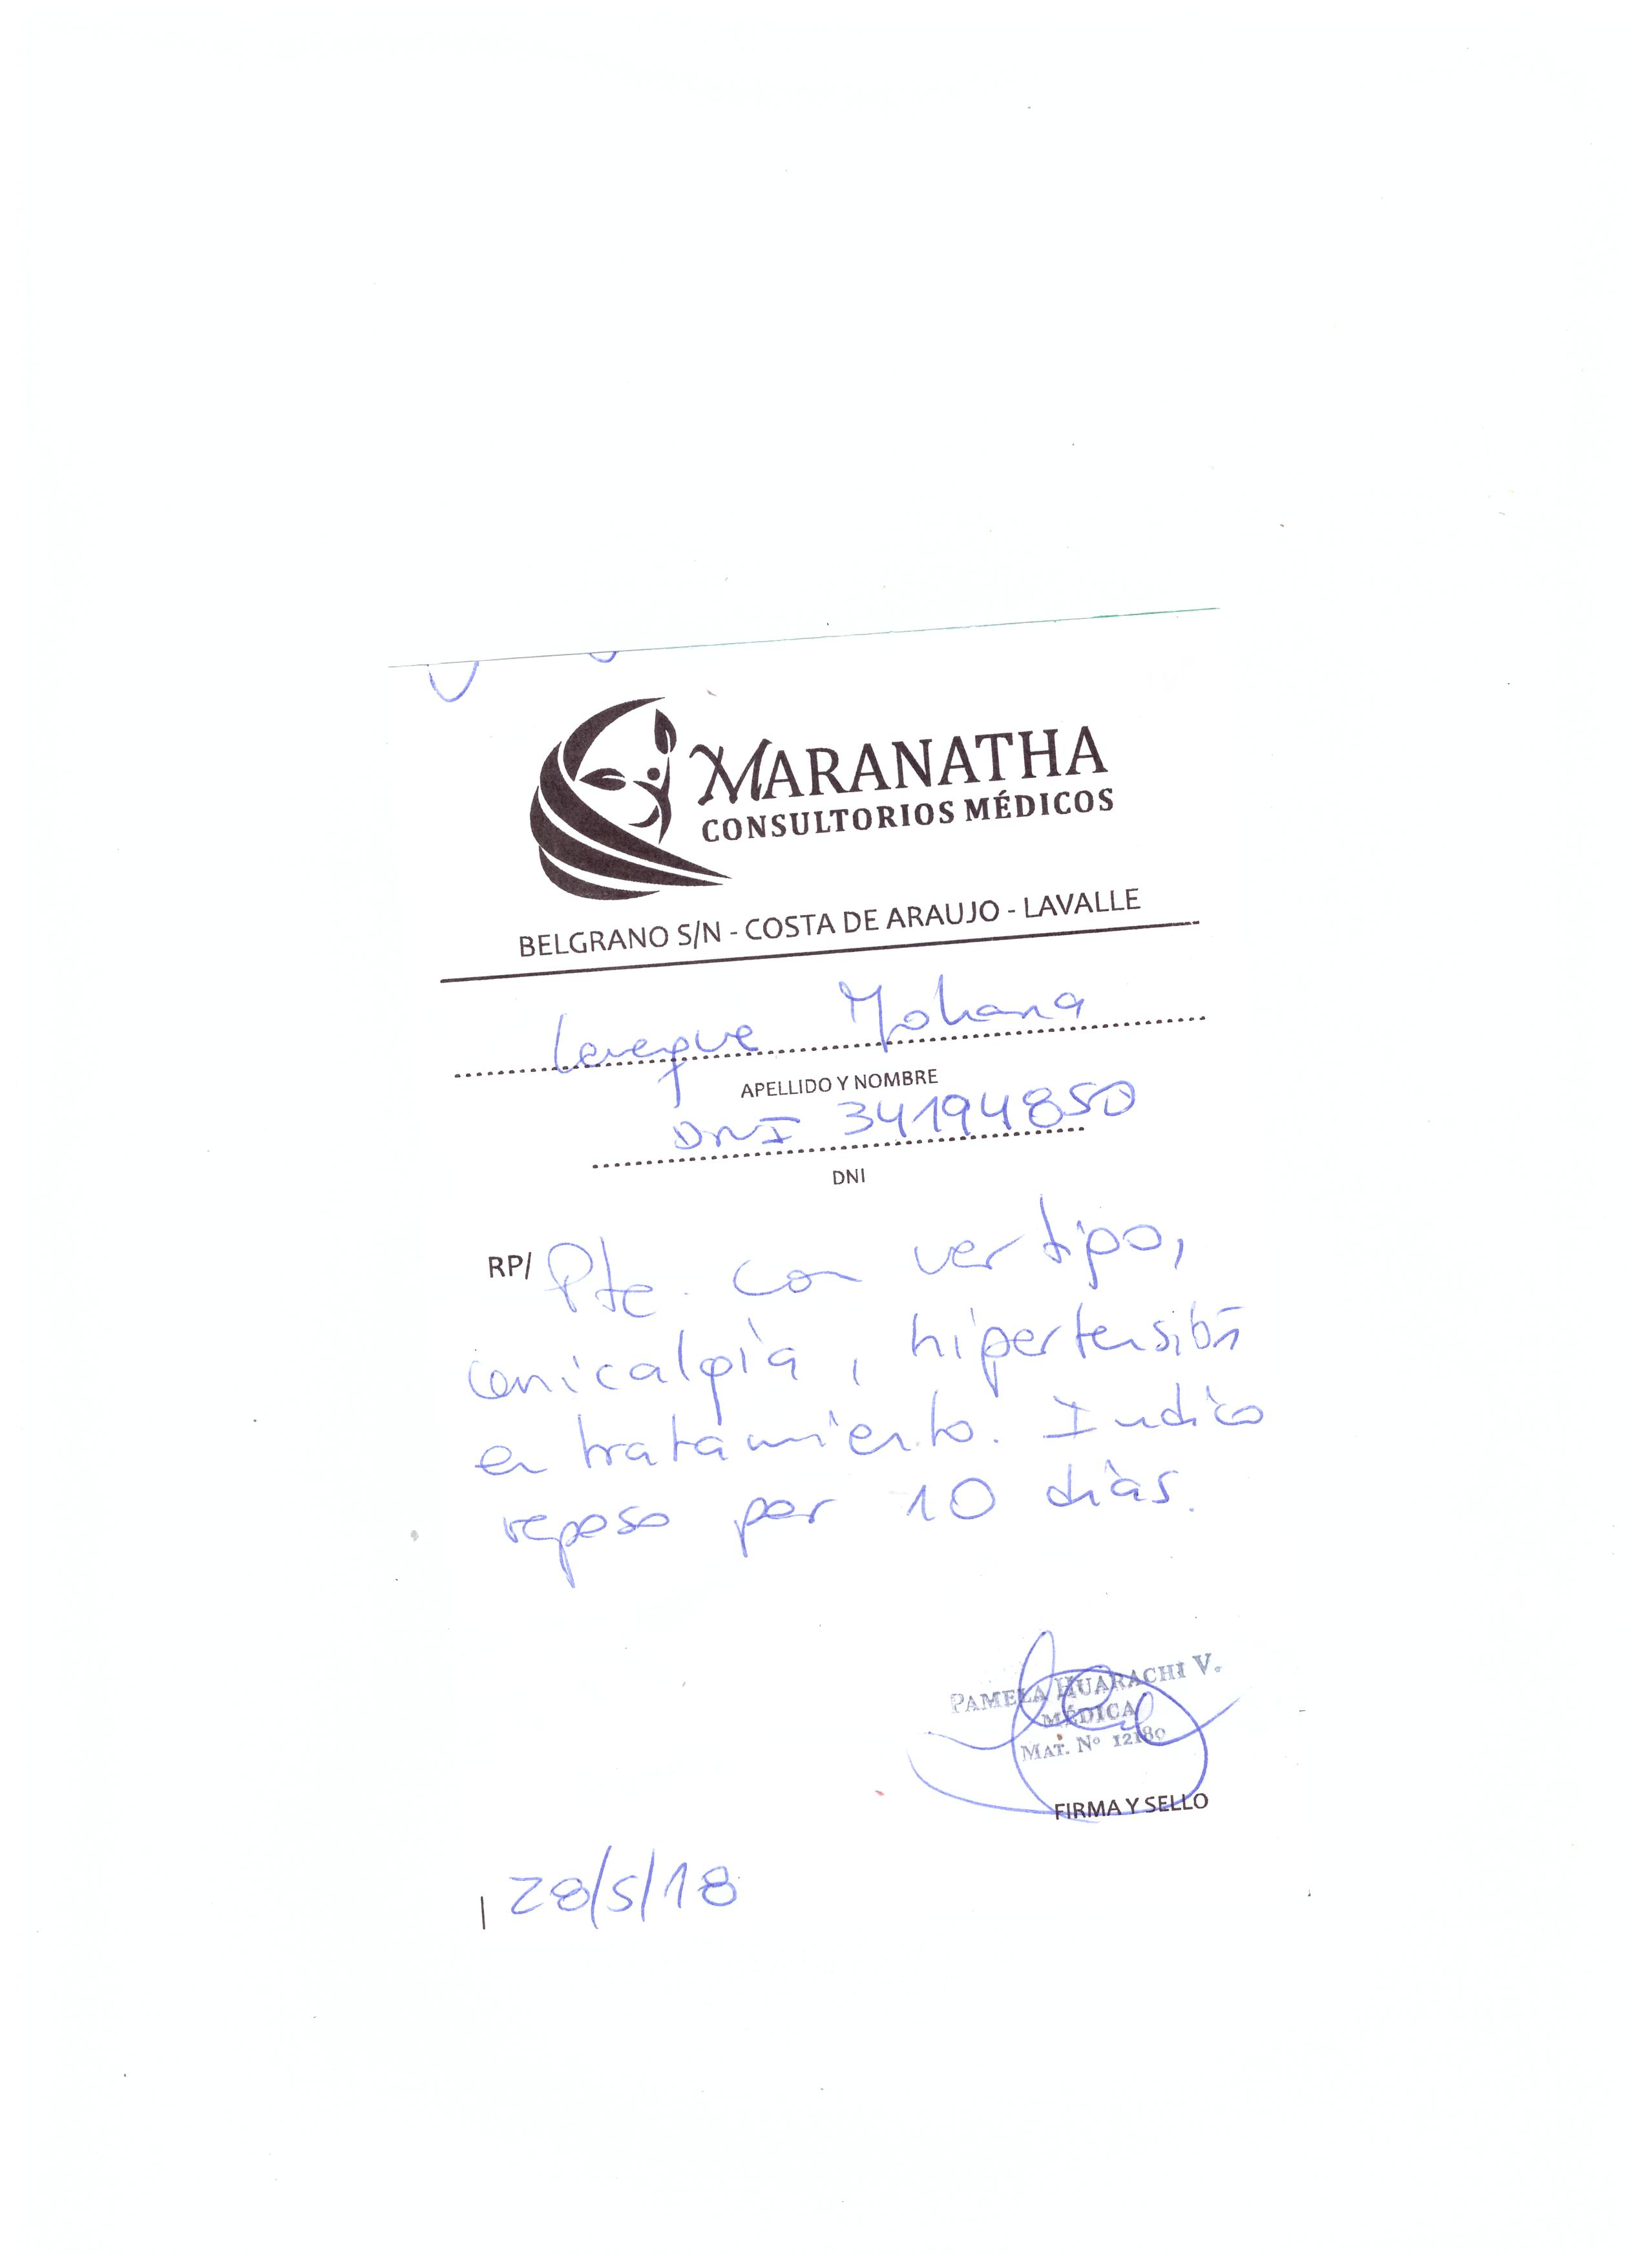 MARANATHA
CONSULTORIOS MÉDICOS
BELGRANO S/N - COSTA DE ARAUJO - LAVALLE
Yohana
APELLIDO Y NOMBRE
DNI 34194850
DNI
RP/ Pte. con vertigo,
cervicalgia, hipertensión
en tratamiento. Indico
reposo por 10 días.
PAMELA HUARACHI V.
MÉDICA
MAT. Nº 12180
FIRMA Y SELLO
28/5/18